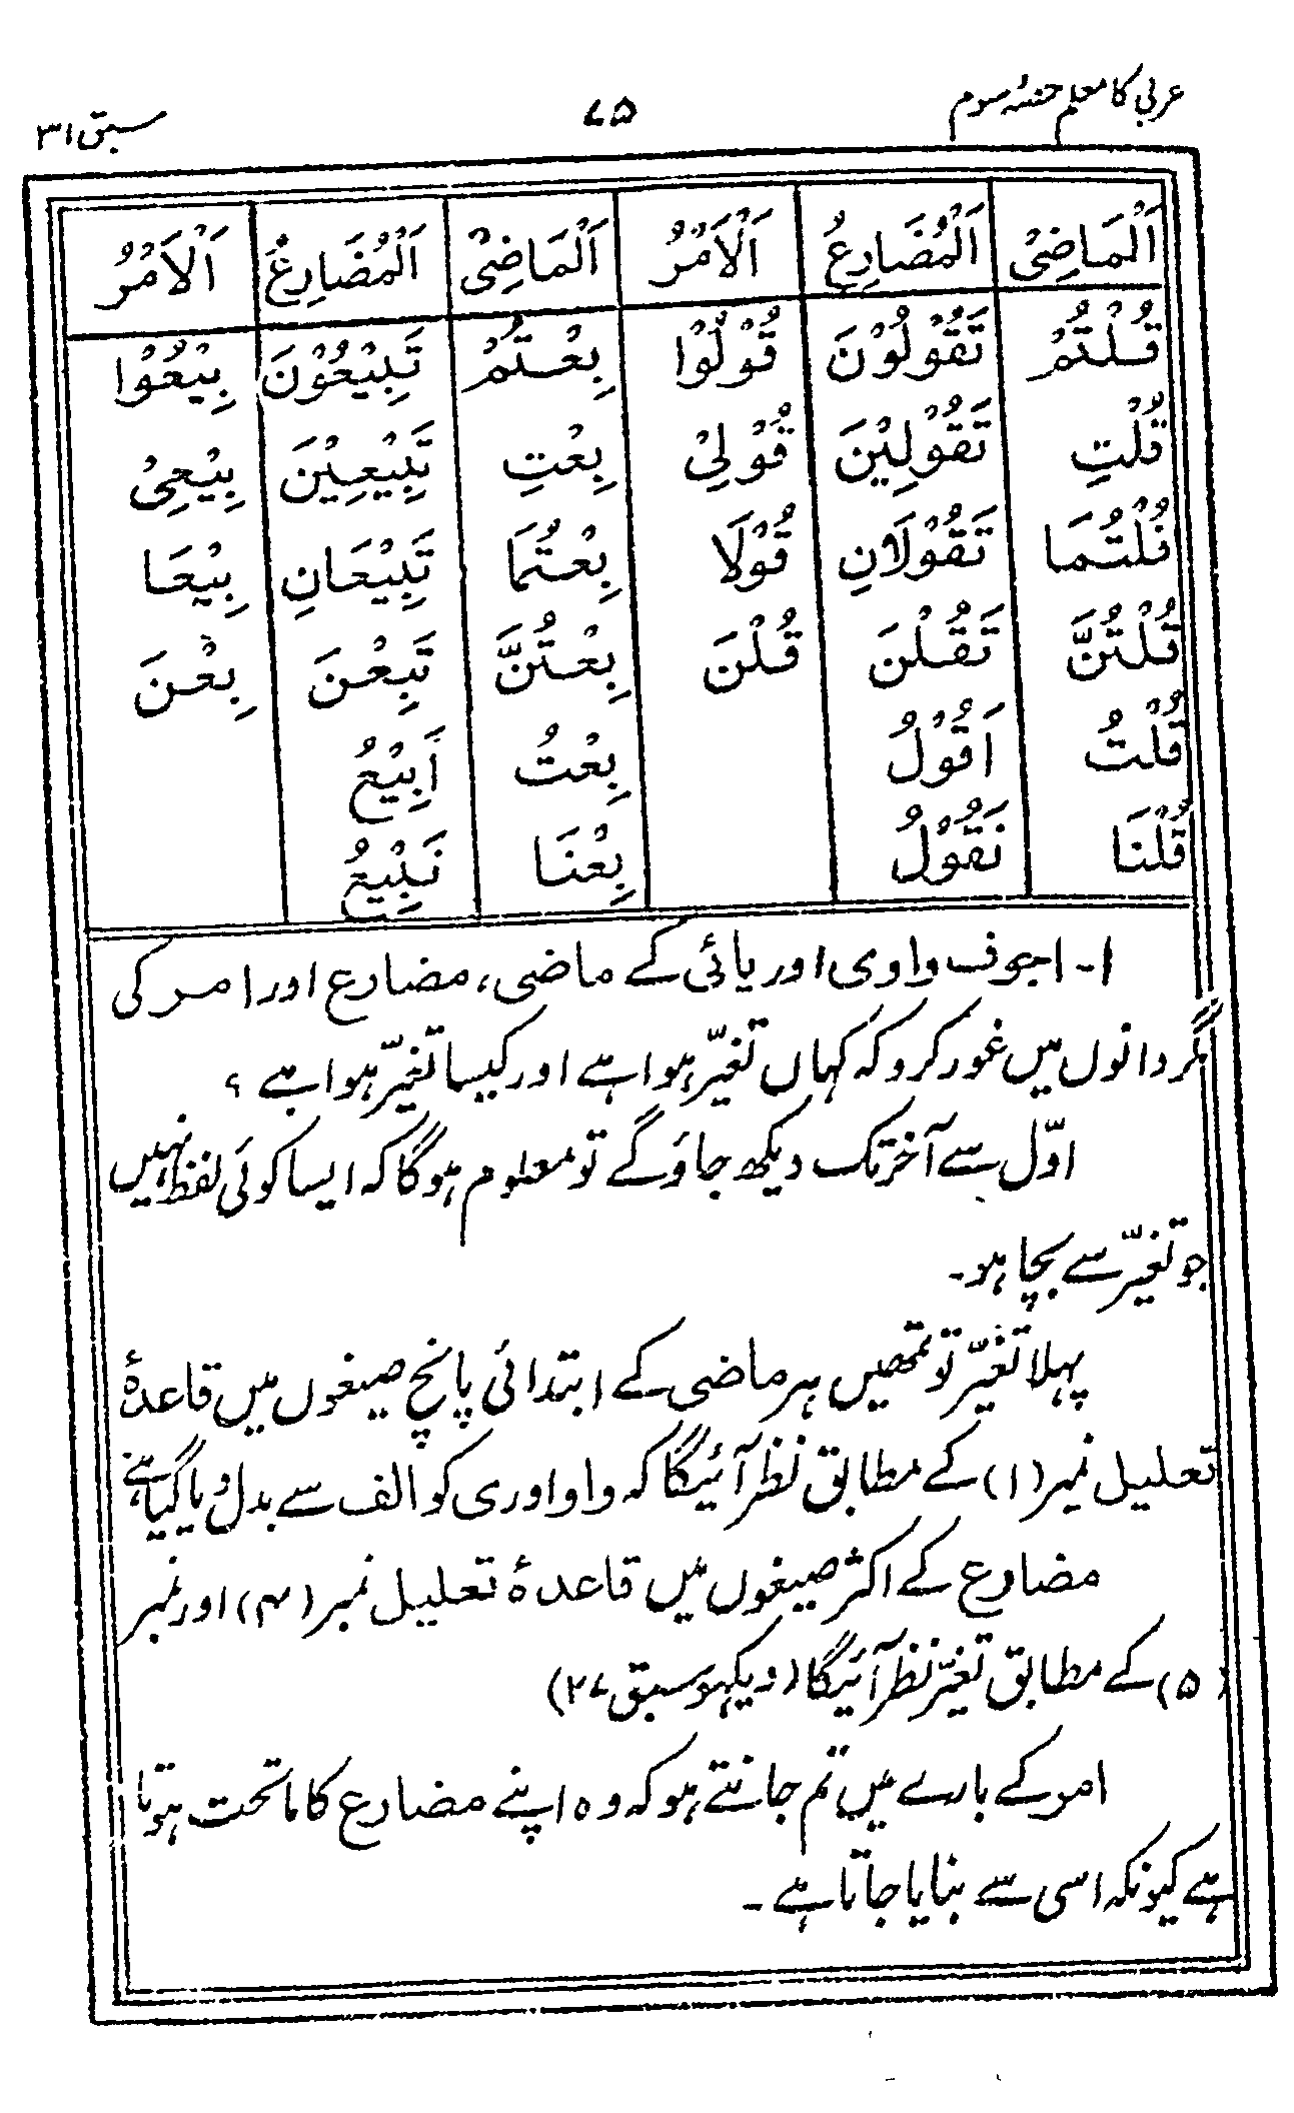 عربی کا معلم حصّہ سوم ۷۵ سبق ۳۱
اَلْمَاضِیْ اَلْمُضَارِعُ اَلْاَمْرُ اَلْمَاضِیْ اَلْمُضَارِعُ اَلْاَمْرُ
قُلْتُمْ تَقُوْلُوْنَ قُوْلُوْا بِعْتُمْ تَبِیْعُوْنَ بِیْعُوْا
قُلْتِ تَقُوْلِیْنَ قُوْلِیْ بِعْتِ تَبِیْعِیْنَ بِیْعِیْ
قُلْتُمَا تَقُوْلَانِ قُوْلَا بِعْتُمَا تَبِیْعَانِ بِیْعَا
قُلْتُنَّ تَقُلْنَ قُلْنَ بِعْتُنَّ تَبِعْنَ بِعْنَ
قُلْتُ اَقُوْلُ بِعْتُ اَبِیْعُ
قُلْنَا نَقُوْلُ بِعْنَا نَبِیْعُ
۱۔ اجوف واوی اور یائی کے ماضی، مضارع اور امر کی
گردانوں میں غور کرو کہ کہاں تغیّر ہوا ہے اور کیسا تغیّر ہوا ہے ؟
اوّل سے آخر تک دیکھ جاؤ گے تو معلوم ہوگا کہ ایسا کوئی لفظ نہیں
جو تغیّر سے بچا ہو۔
پہلا تغیّر تو تمھیں ہر ماضی کے ابتدائی پانچ صیغوں میں قاعدۂ
تعلیل نمبر (۱) کے مطابق نظر آئیگا کہ واو اور ی کو الف سے بدل دیا گیا ہے
مضارع کے اکثر صیغوں میں قاعدۂ تعلیل نمبر (۴) اور نمبر
(۵) کے مطابق تغیّر نظر آئیگا (دیکھو سبق ۲۷)
امر کے بارے میں تم جانتے ہو کہ وہ اپنے مضارع کا ماتحت ہوتا
ہے کیونکہ اسی سے بنایا جاتا ہے ۔